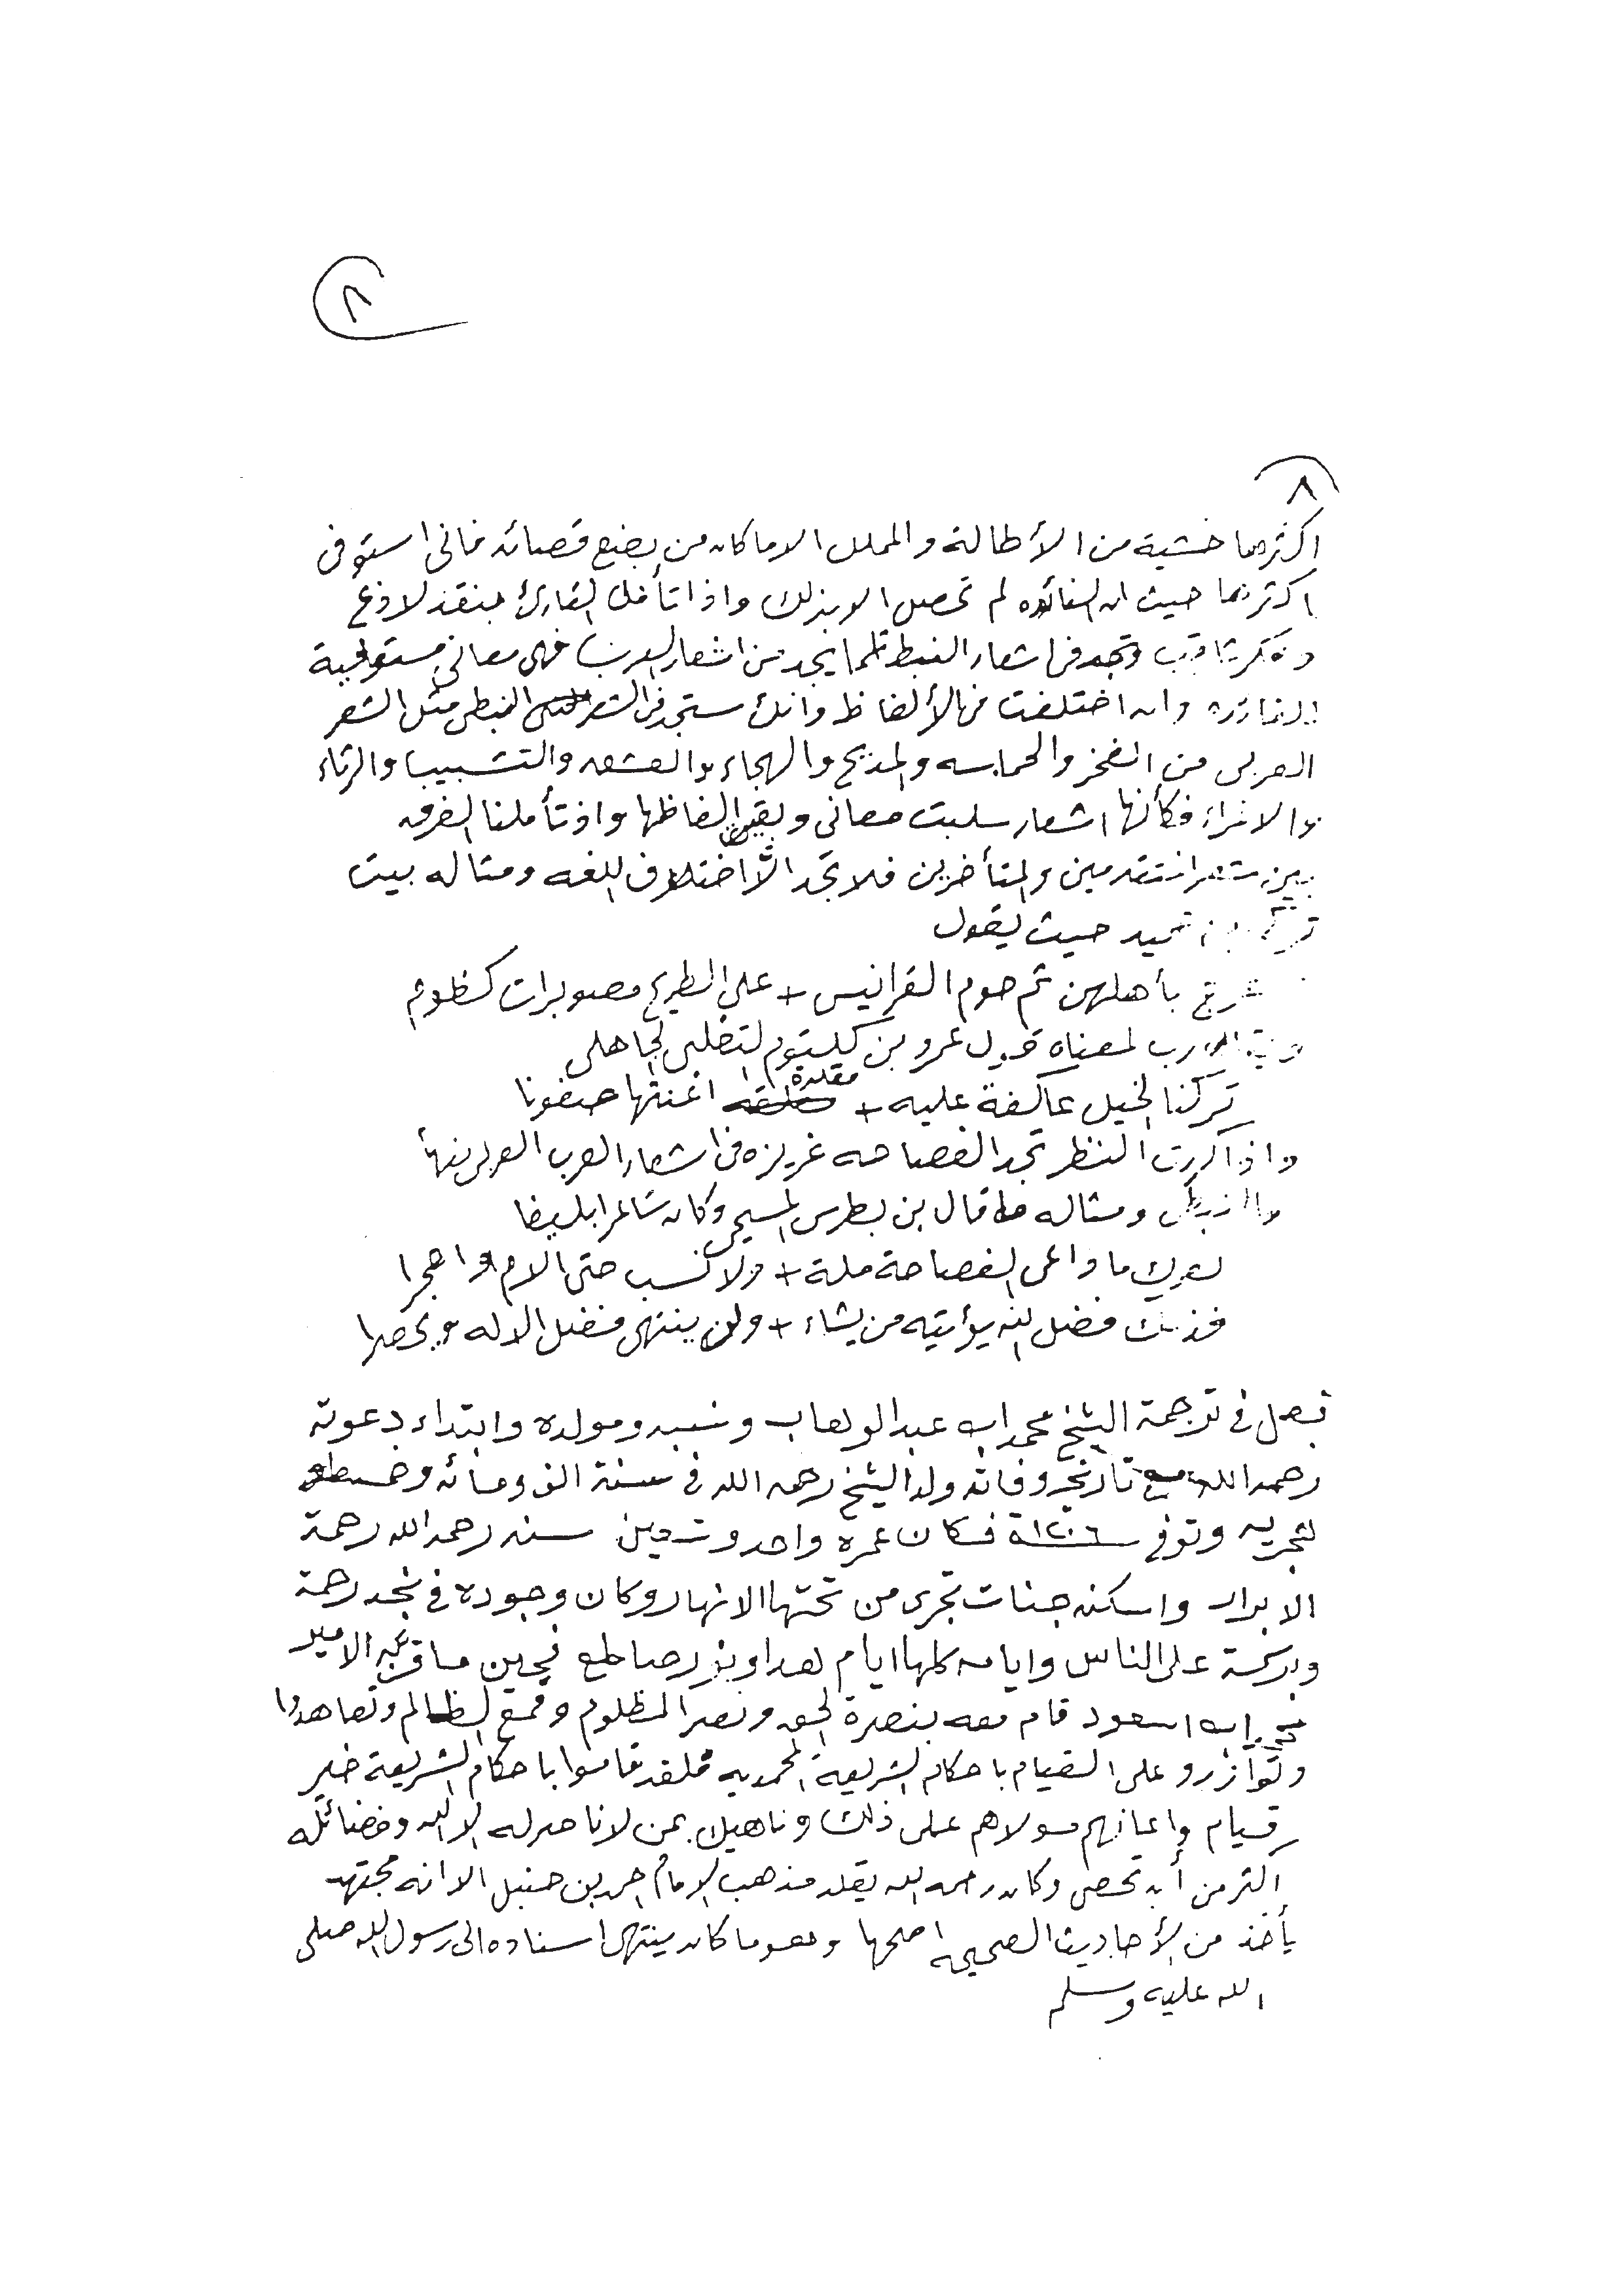 ٨
٨
اكثرهما خشية من الأطالة والملل الا ما كان من بضع قصائد فاني استوفى
اكثرهما حيث ان الفائده لم تحصل الا بذلك واذا تأمل القارئ بنقد لاذع
وفكر ثاقب وتجد في اشعار النبط كلما يجد من اشعار العرب فهي معاني مستوفية
وان اختلفت فيها الألفاظ وانك ستجد في الشعر النبطي مثل الشعر
العربي من الفخر والحماسه والمديح والهجاء والعشق والتشبيب والرثاء
والاغراء فكأنها اشعار سلبت معاني وبقيت الفاظها واذ تأملنا الفرق
بين شعر المتقدمين والمتأخرين فلا تجد الا اختلاف اللغه ومثاله بيت
تركي بن حميد حيث يقول
بأهلهن ثم حوم القرانيس + على الطريح مصوبرات كظوم
لمعناه قول عمرو بن كلثوم التغلبي الجاهلي
تركنا الخيل عاكفة عليه + مقلدة اعنتها صفونا
واذا كررت النظر تجد الفصاحه غريزه في اشعار العرب العربي منها
والنبطي ومثاله ما قال بن بطرس المسيحي وكان شاعرا بليغا
لعمرك ما داعي الفصاحة ملة + ولا نسب حتى الام واهجرا
فذلك فضل الله يؤتيه من يشاء + ولن ينتهى فضل الاله ويحصرا
فصل في ترجمة الشيخ محمد ابن عبد الوهاب ونسبه ومولده وابتداء دعوته
رحمه الله مع تاريخ وفاته ولد الشيخ رحمه الله في سنة الف ومائه وخمسطعش
هجريه وتوفي سنة ١٢٠٦ فكان عمره واحد وتسعين سنه رحمه الله رحمة
الابرار واسكنه جنات تجرى من تحتها الانهار وكان وجوده في نجد رحمة
وبركة على الناس وايامه كلها ايام هدا ونور ساطع فحين ما قربه الامير
محمد ابن اسعود قام معه بنصرة الحق ونصر المظلوم وقمع الظالم وتعاهدوا
وتوازرو على القيام باحكام الشريعة المحمديه فلقد قاموا باحكام الشريعة خير
قيام واعانهم مولاهم على ذلك وناهيك بمن لا ناصر له الا الله وفضائله
اكثر من أن تحصى وكان رحمه الله يقلد مذهب الامام احمد بن حنبل الا انه مجتهد
يأخذ من الأحاديث الصحيحه اصلحها وهو ما كان ينتهى اسناده الى رسول الله صلى
الله عليه وسلم